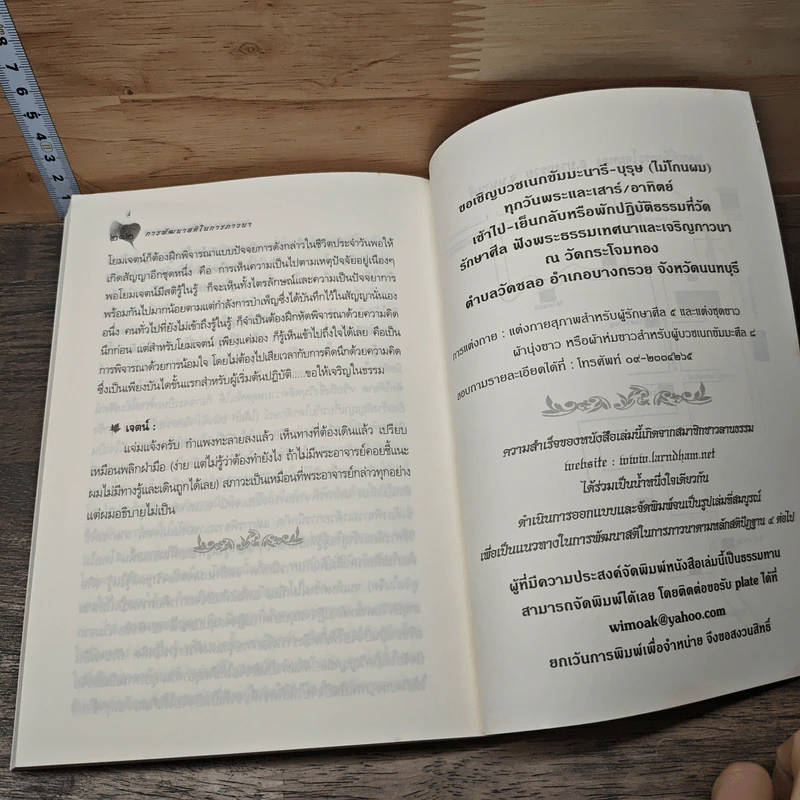 ๒๒
การพัฒนาสติในการภาวนา
โยมเจตน์ก็ต้องฝึกพิจารณาแบบปัจจยการดังกล่าวในชีวิตประจำวันพอให้
เกิดสัญญาอีกชุดหนึ่ง คือ การเห็นความเป็นไปตามเหตุปัจจัยอยู่เนืองๆ
พอโยมเจตน์มีสติรู้ในรู้ ก็จะเห็นทั้งไตรลักษณ์และความเป็นปัจจยาการ
พร้อมกันไปมากน้อยตามแต่กำลังการบำเพ็ญซึ่งได้บันทึกไว้ในสัญญานั่นเอง
อนึ่ง คนทั่วไปที่ยังไม่เข้าถึงรู้ในรู้ ก็จำเป็นต้องฝึกหัดพิจารณาด้วยความคิด
นึกก่อน แต่สำหรับโยมเจตน์ เพียงแค่มอง ก็รู้เห็นเข้าไปถึงใจได้เลย คือเป็น
การพิจารณาด้วยการน้อมใจ โดยไม่ต้องไปเสียเวลากับการคิดนึกด้วยความคิด
ซึ่งเป็นเพียงบันไดขั้นแรกสำหรับผู้เริ่มต้นปฏิบัติ.....ขอให้เจริญในธรรม
เจตน์ :
แจ่มแจ้งครับ กำแพงทะลายลงแล้ว เห็นทางที่ต้องเดินแล้ว เปรียบ
เหมือนพลิกฝ่ามือ (ง่าย แต่ไม่รู้ว่าต้องทำยังไง ถ้าไม่มีพระอาจารย์คอยชี้แนะ
ผมไม่มีทางรู้และเดินถูกได้เลย) สภาวะเป็นเหมือนที่พระอาจารย์กล่าวทุกอย่าง
แต่ผมอธิบายไม่เป็น
ขอเชิญบวชเนกขัมมะนารี-บุรุษ (ไม่โกนผม)
ทุกวันพระและเสาร์/อาทิตย์
เช้าไป-เย็นกลับหรือพักปฏิบัติธรรมที่วัด
รักษาศีล ฟังพระธรรมเทศนาและเจริญภาวนา
ณ วัดกระโจมทอง
ตำบลวัดชลอ อำเภอบางกรวย จังหวัดนนทบุรี
การแต่งกาย : แต่งกายสุภาพสำหรับผู้รักษาศีล ๕ และแต่งชุดขาว
ผ้านุ่งขาว หรือผ้าห่มขาวสำหรับผู้บวชเนกขัมมะศีล ๘
สอบถามรายละเอียดได้ที่ : โทรศัพท์ ๐๙-๒๐๐๔๒๖๕
ความสำเร็จของหนังสือเล่มนี้เกิดจากสมาชิกชาวลานธรรม
website : www.larndham.net
ได้ร่วมเป็นน้ำหนึ่งใจเดียวกัน
ดำเนินการออกแบบและจัดพิมพ์จนเป็นรูปเล่มที่สมบูรณ์
เพื่อเป็นแนวทางในการพัฒนาสติในการภาวนาตามหลักสติปัฏฐาน ๔ ต่อไป
ผู้ที่มีความประสงค์จัดพิมพ์หนังสือเล่มนี้เป็นธรรมทาน
สามารถจัดพิมพ์ได้เลย โดยติดต่อขอรับ plate ได้ที่
wimoak@yahoo.com
ยกเว้นการพิมพ์เพื่อจำหน่าย จึงขอสงวนสิทธิ์